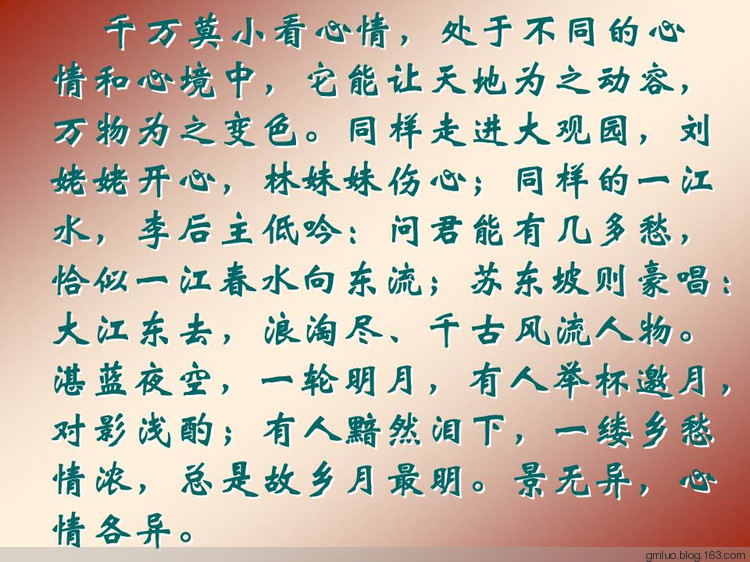 千万莫小看心情，处于不同的心
情和心境中，它能让天地为之动容，
万物为之变色。同样走进大观园，刘
姥姥开心，林妹妹伤心；同样的一江
水，李后主低吟：问君能有几多愁，
恰似一江春水向东流；苏东坡则豪唱：
大江东去，浪淘尽、千古风流人物。
湛蓝夜空，一轮明月，有人举杯邀月，
对影浅酌；有人黯然泪下，一缕乡愁
情浓，总是故乡月最明。景无异，心
情各异。
gmluo.blog.163.com